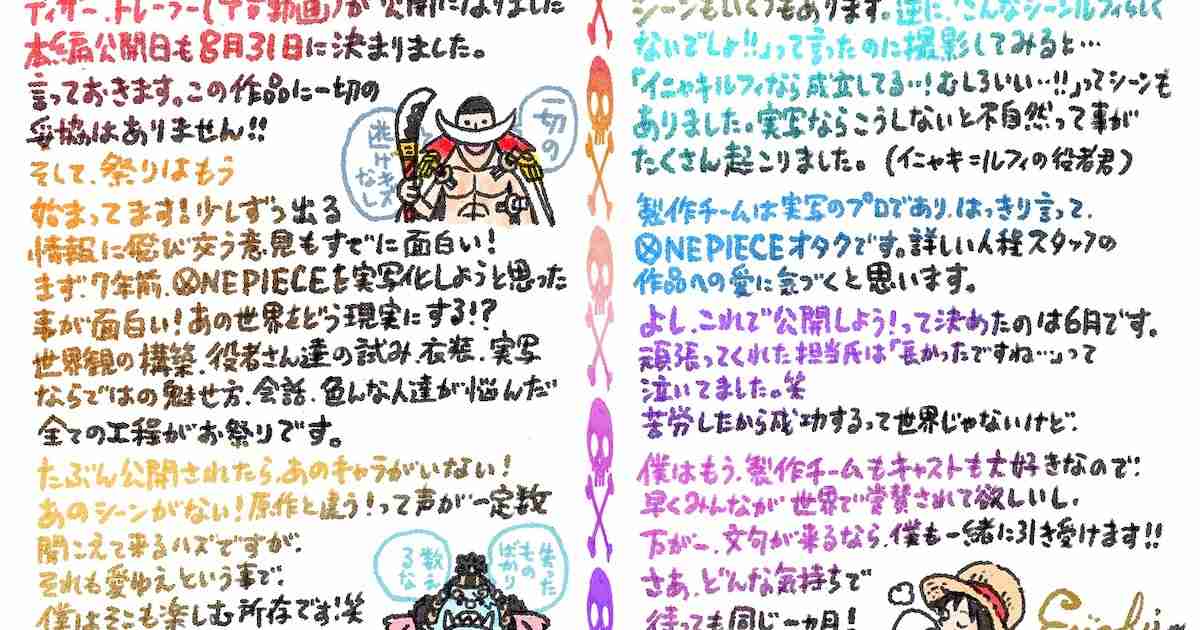 ティザー.トレーラー(予告動画)が公開になりました
本編公開日も8月31日に決まりました。
言っておきます。この作品に一切の
妥協はありません!!
一切の
逃げキズ
なし
そして、祭りはもう
始まってます!少しずつ出る
情報に飛び交う意見もすでに面白い!
まず、7年前、ONE PIECEを実写化しようと思った
事が面白い!あの世界をどう現実にする!?
世界観の構築、役者さん達の試み、衣装、実写
ならではの魅せ方、会話、色んな人達が悩んだ
全ての工程がお祭りです。
たぶん公開されたら、あのキャラがいない!
あのシーンがない!原作と違う!って声が一定数
聞こえて来るハズですが、
それも愛ゆえという事で、
僕はそこも楽しむ所存です!笑
失った
ものばかり
数え
るな
シーンもいくつもあります。逆に、「こんなシーンルフィらしく
ないでしょ!!」って言ったのに撮影してみると…
「イニャキルフィなら成立してる…!むしろいい…!!」ってシーンも
ありました。実写ならこうしないと不自然って事が
たくさん起こりました。(イニャキ=ルフィの役者君)
製作チームは実写のプロであり、はっきり言って、
ONE PIECEオタクです。詳しい人程スタッフの
作品への愛に気づくと思います。
よし、これで公開しよう!って決めたのは6月です。
頑張ってくれた担当氏は「長かったですね…」って
泣いてました。笑
苦労したから成功するって世界じゃないけど、
僕はもう、製作チームもキャストも大好きなので、
早くみんなが世界で賞賛されて欲しいし、
万が一、文句が来るなら、僕も一緒に引き受けます!!
さあ、どんな気持ちで
待っても同じ一ヵ月!